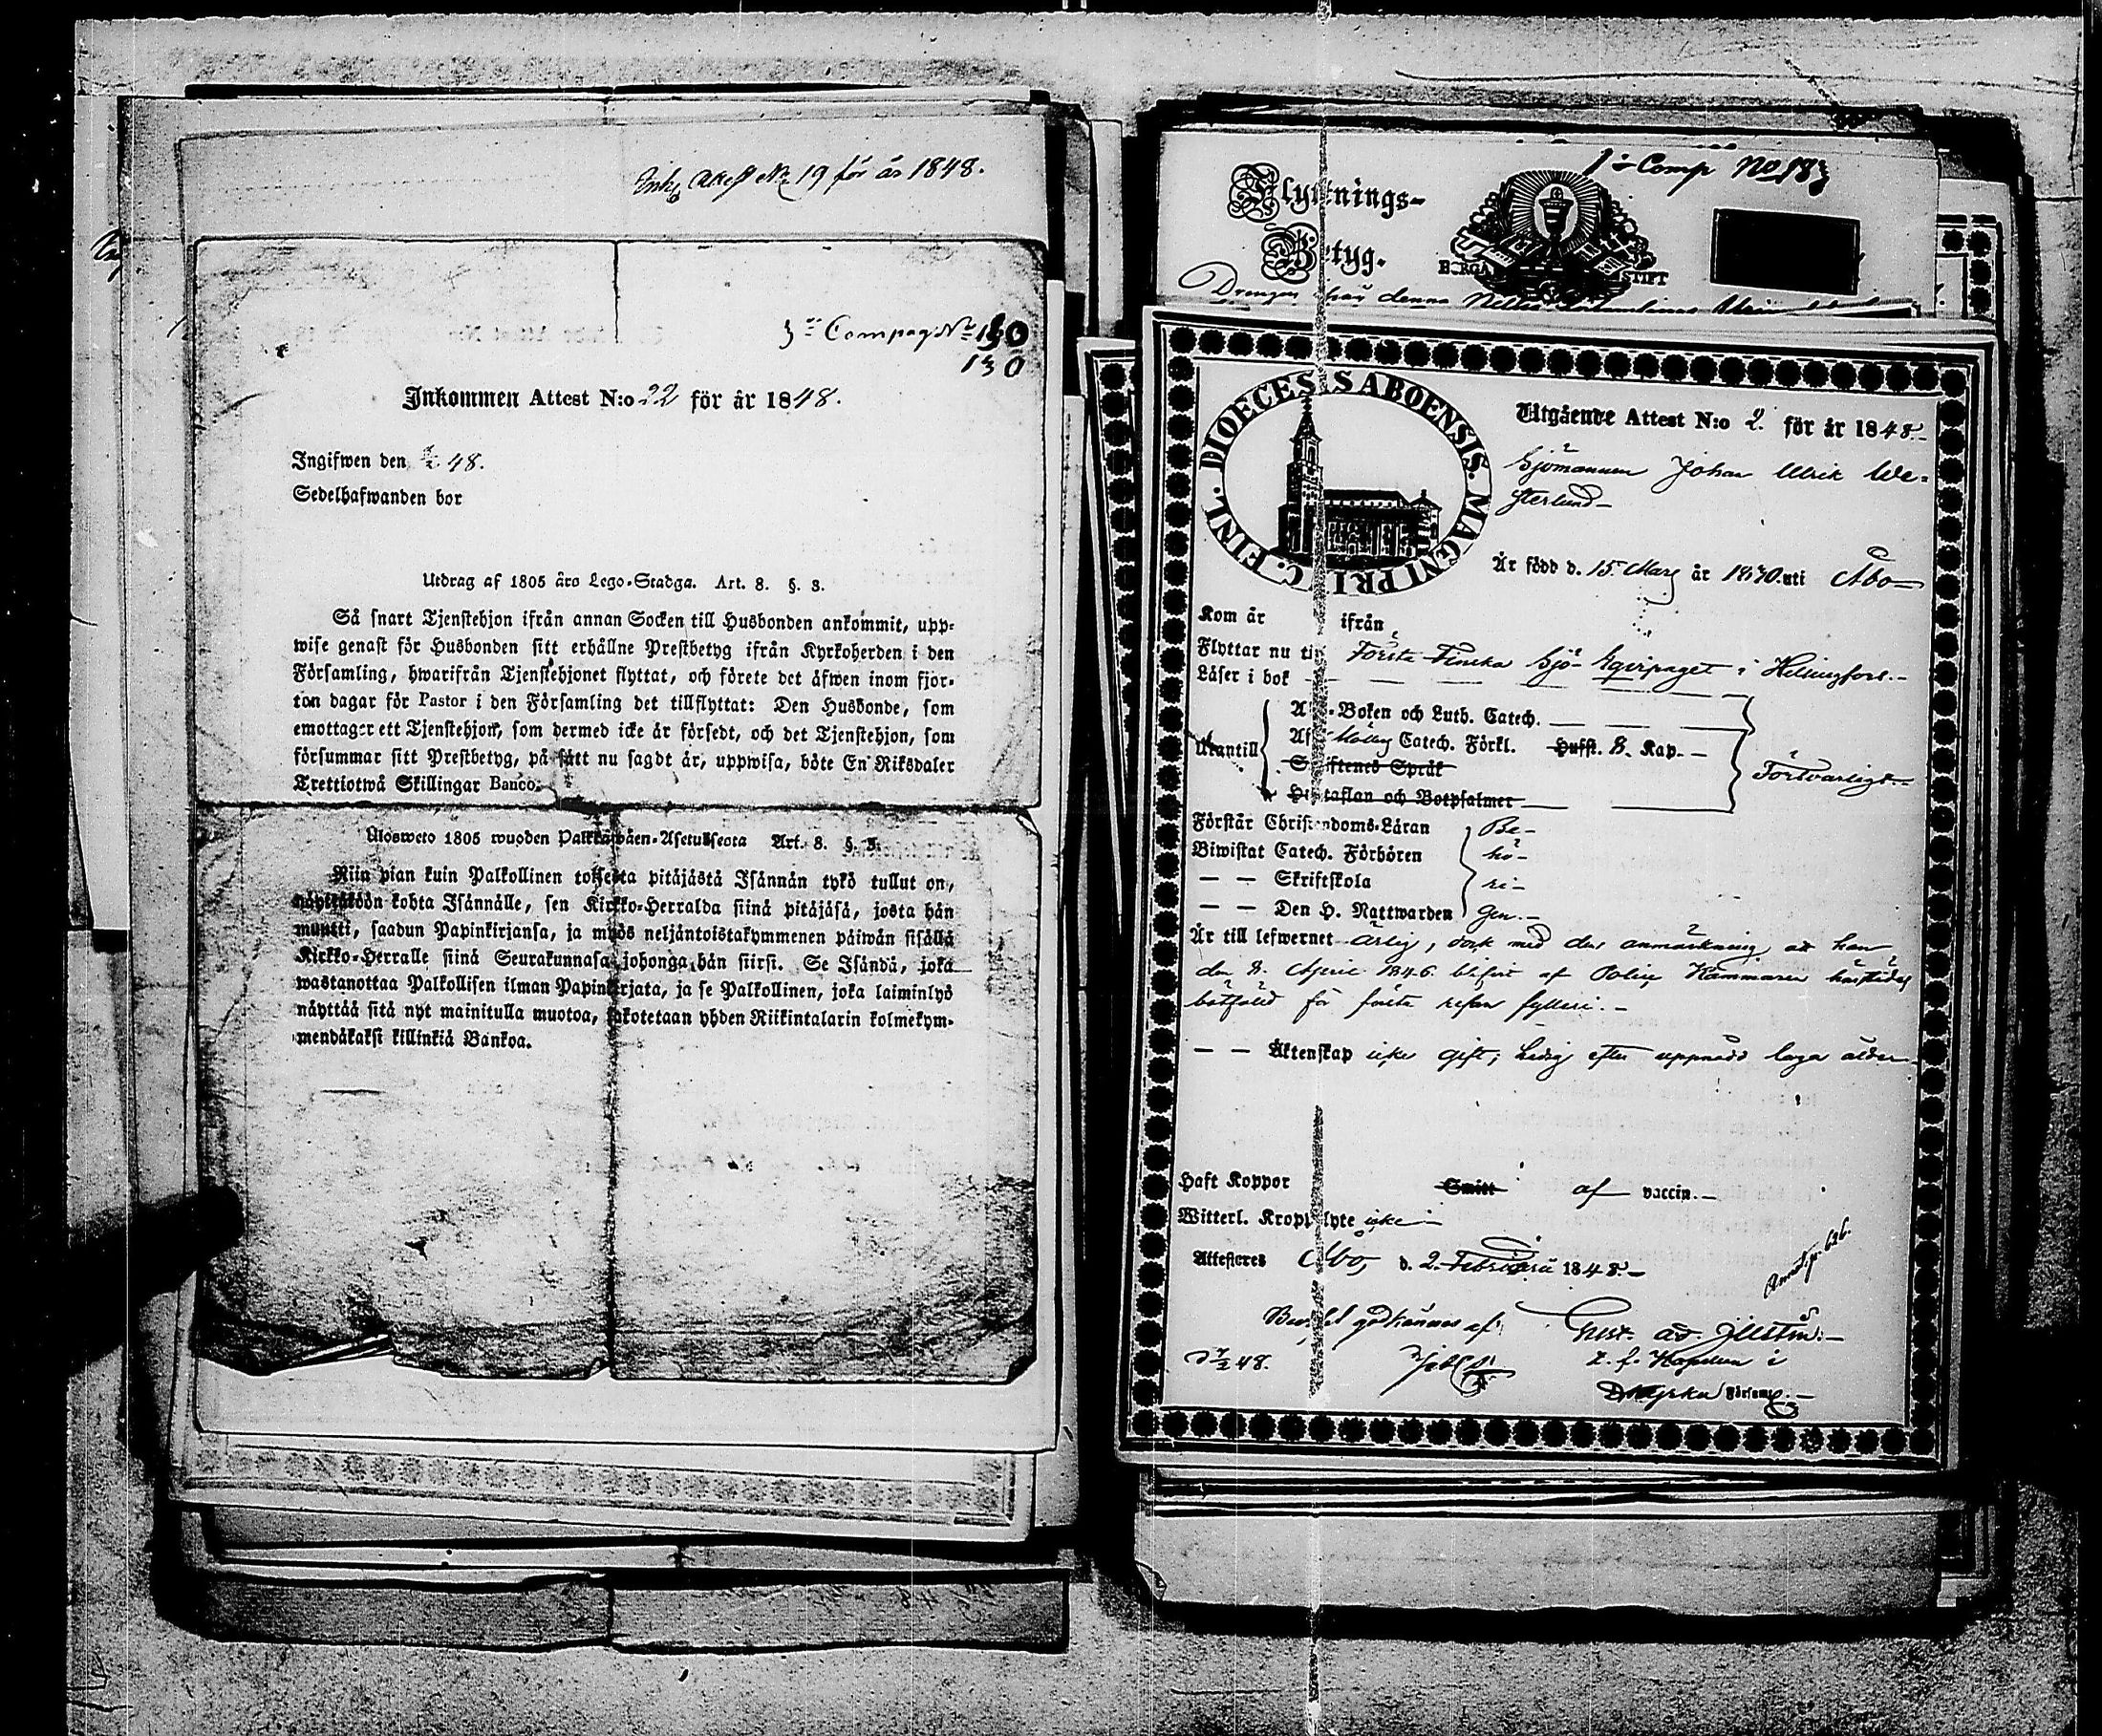 Ink. Attest No 19 för år 1848.
3:e Compag No 130
130
Inkommen Attest N:o 22 för år 1848.
Ingifwen den 48.
Sedelhafwanden bor
Utdrag af 1805 års Lego-Stadga. Art. 8. §. 3.
Så snart Tjenstehjon ifrån annan Socken till Husbonden ankommit, upp-
wise genast för Husbonden sitt erhållne Prestbetyg ifrån Kyrkoherden i den
Församling, hwarifrån Tjenstehjonet flyttat, och förete det äfwen inom fjor-
ton dagar för Pastor i den Församling det tillflyttat: Den Husbonde, som
emottager ett Tjenstehjon, som dermed icke är försedt, och det Tjenstehjon, som
försummar sitt Prestbetyg, på sätt nu sagdt är, uppwisa, böte En Riksdaler
Trettiotwå Skillingar Banco.
Ulosweto 1805 wuoden Palkkawäen-Asetuksesta Art. 8. §. 3.
Niin pian kuin Palkollinen toisesta pitäjästä Isännän tykö tullut on,
näyttäköön kohta Isännälle, sen Kirkko-Herralda siinä pitäjäsä, josta hän
muutti, saadun Papinkirjansa, ja myös neljäntoistakymmenen päiwän sisällä
Kirkko-Herralle siinä Seurakunnasa johonga hän siirsi. Se Isändä, joka
wastanottaa Palkollisen ilman Papinkirjata, ja se Palkollinen, joka laiminlyö
näyttää sitä nyt mainitulla muotoa, sakotetaan yhden Riikintalarin kolmekym-
mendäkaksi killinkiä Bankoa.
1:a Comp No 183
Flyttnings-
Betyg.
BORGÅ STIFT
Drengen från denna
DIOECESIS ABOENSIS. MAGNI PRINC. FINL.
Utgående Attest N:o 2. för år 1848.
Sjömannen Johan Ulrik We-
sterlund
Är född d. 15. Mars år 1830. uti Åbo
Kom år ifrån
Flyttar nu till Första Finska Sjö-Eqvipaget i Helsingfors.
Läser i bok
Utantill
A.B.C.-Boken och Luth. Catech.
Af Möllers Catech. Förkl. Hufst. 8. Kap.
Skriftenes Språk
Hustaflan och Botpsalmer
Försvarligt.
Förstår Christendoms-Läran Be-
Biwistat Catech. Förhören hö-
— — Skriftskola ri-
— — Den H. Nattwarden gen.
Är till lefwernet ärlig, dock med den anmärkning att han
den 8. April 1846 blifvit af Police Kammaren härstädes
bötfälld för första resan fylleri.
— — Äktenskap icke gift; ledig efter uppnådd laga ålder
Haft Koppor Smitt af vaccin.
Witterl. Kroppslyte icke
Attesteres Åbo, d. 2. Februarii 1848.
Annot. p. 626.
Betyget godkännes af
48.
t. f. Kapellan i
Domkyrko Församl.